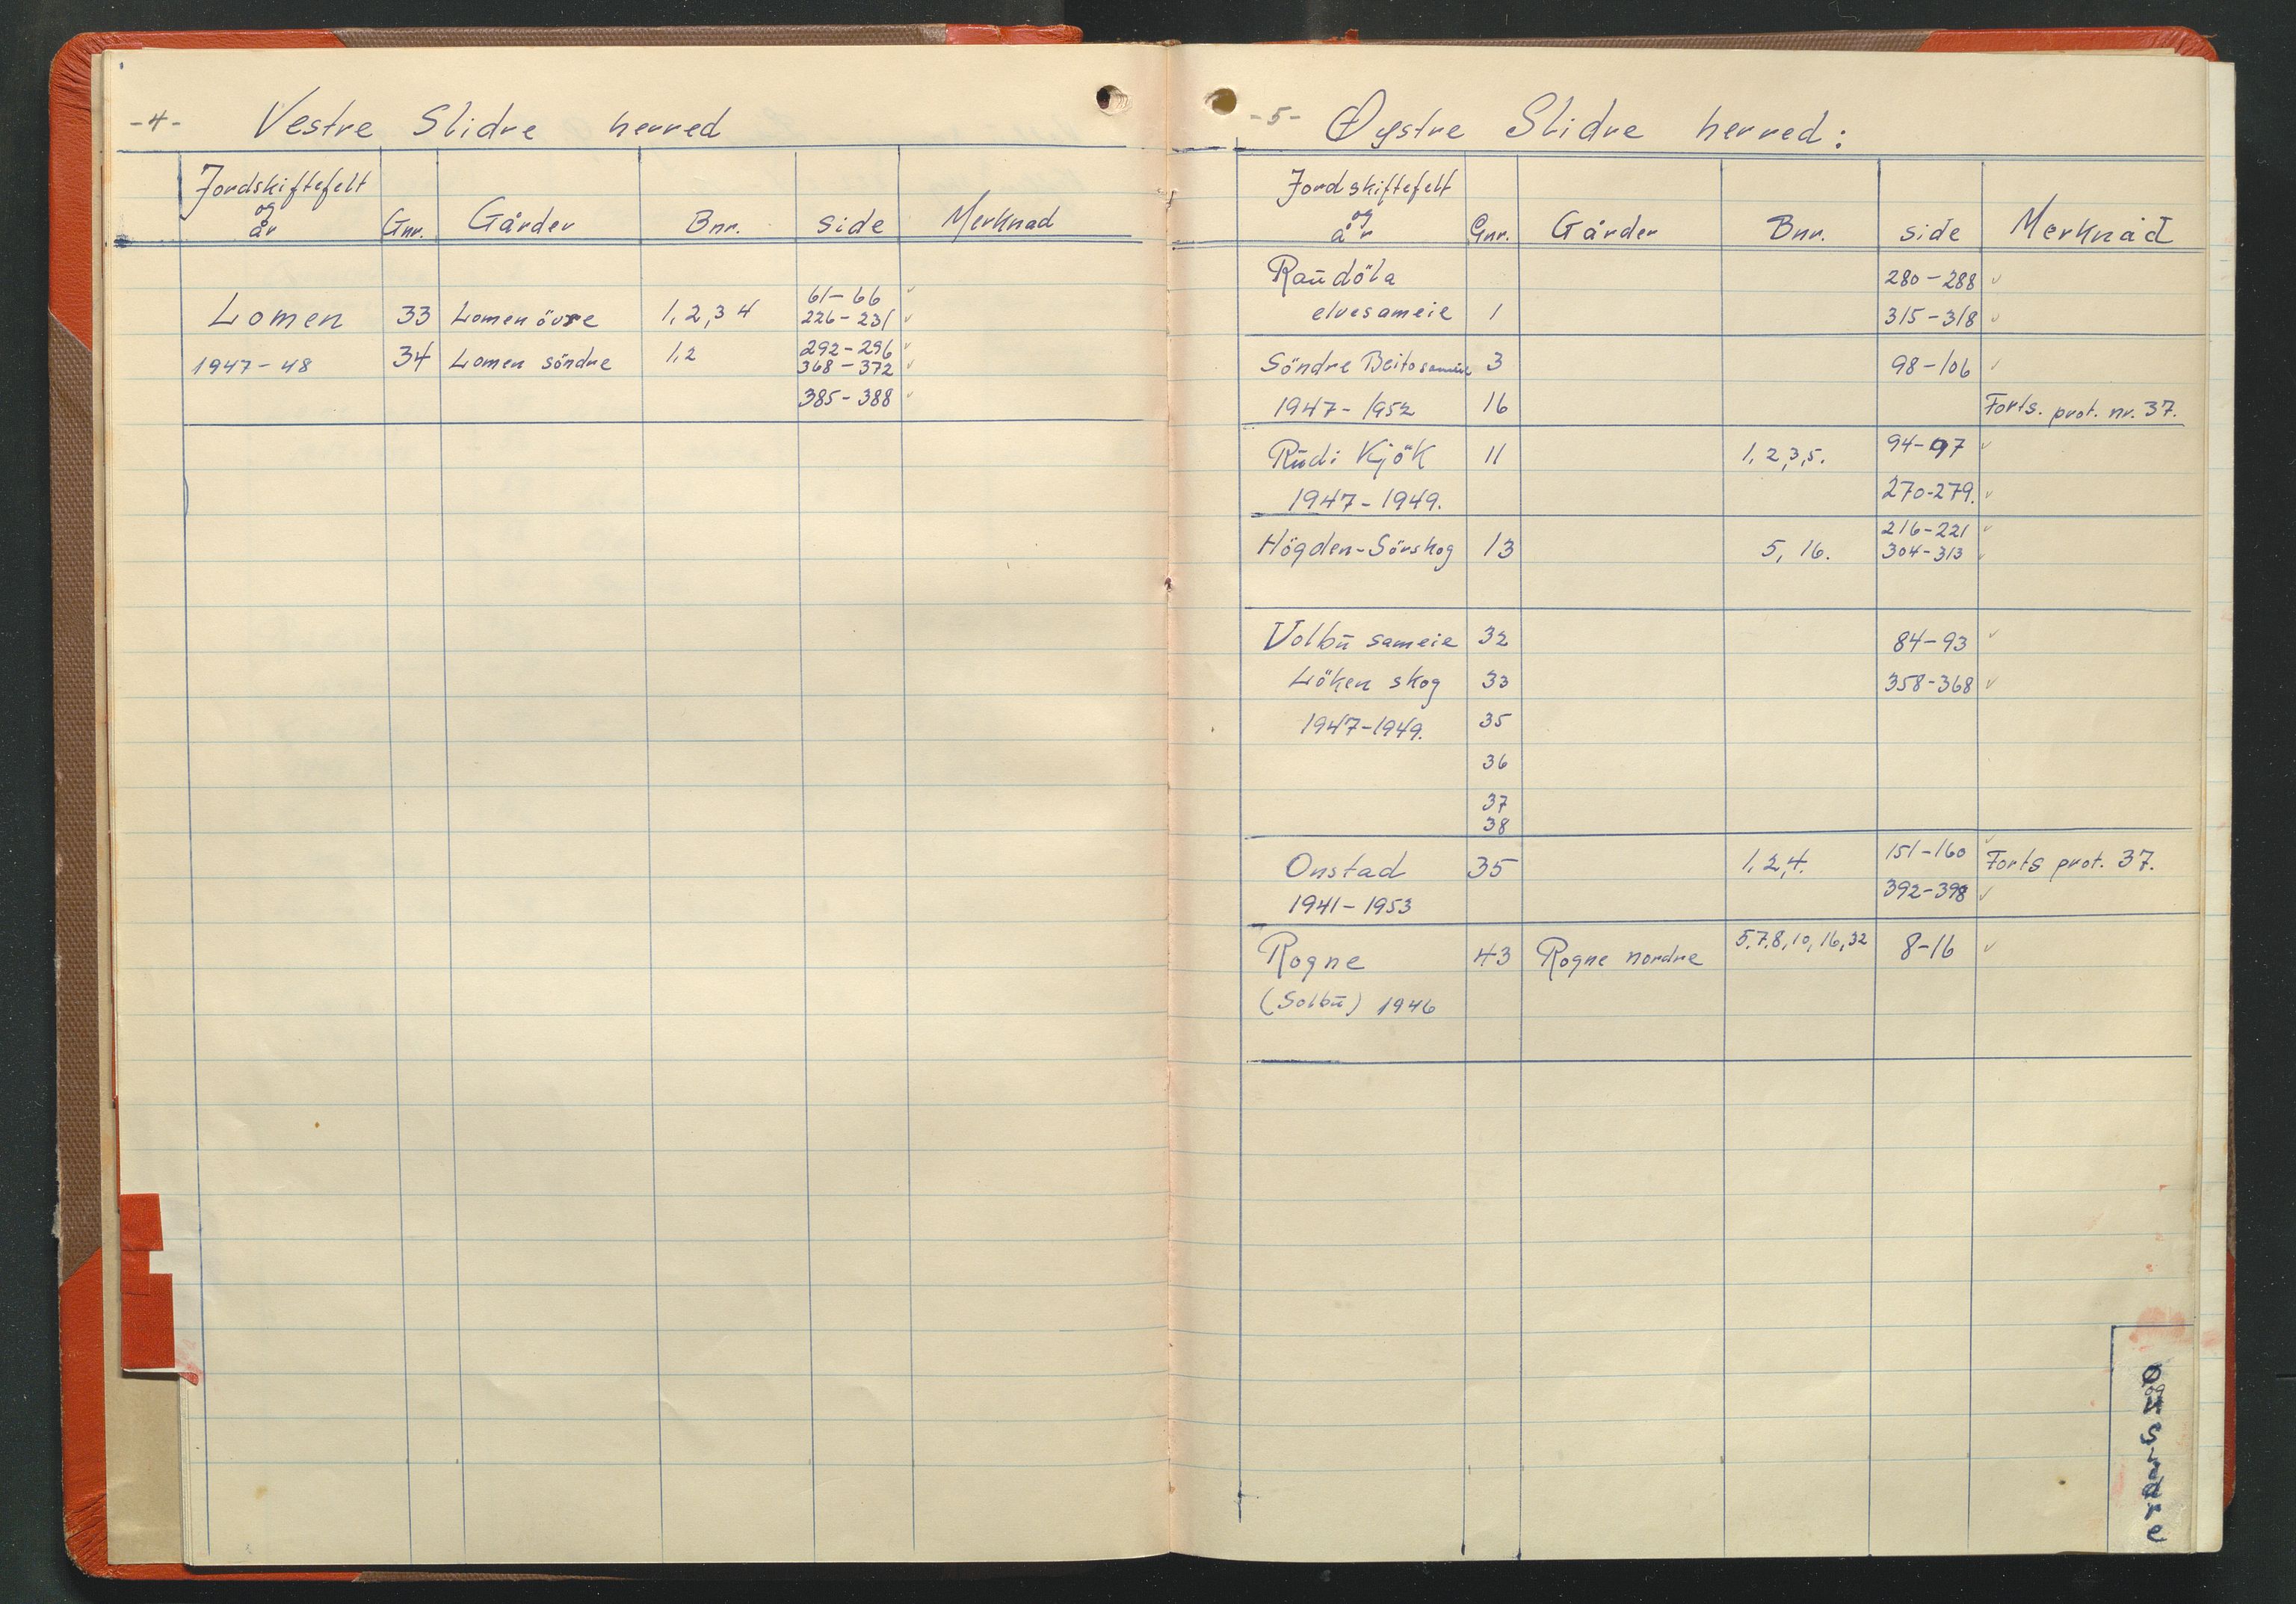 -4- Vestre Slidre herred
Jordskiftefelt
og
år Gnr. Gårder Bnr. Side Merknad
61-66 ✓
Lomen 33 Lomen övre 1, 2, 3 4 226-231 ✓
292-296 ✓
1947-48 34 Lomen söndre 1, 2 368-372 ✓
385-388 ✓
-5- Øystre Slidre herred:
Jordskiftefelt
og
år Gnr. Gårder Bnr. side Merknad
Raŭdöla 280-288 ✓
elvesameie 1 315-318 ✓
Söndre Beitosameie 3 98-106 ✓
1947-1952 16 Forts. prot. nr. 37.
Rŭdi Kjök 11 1, 2, 3, 5. 94-97 ✓
1947-1949. 270-279. ✓
216-221 ✓
Högden-Sörskog 13 5, 16. 304-313 ✓
Volbŭ sameie 32 84-93 ✓
Löken skog 33 358-368 ✓
1947-1949. 35
36
37
38
Onstad 35 1, 2, 4. 151-160 ✓ Forts prot. 37.
1941-1953 392-398 ✓
Rogne 43 Rogne nordre 5, 7, 8, 10, 16, 32 8-16 ✓
(Solbŭ) 1946